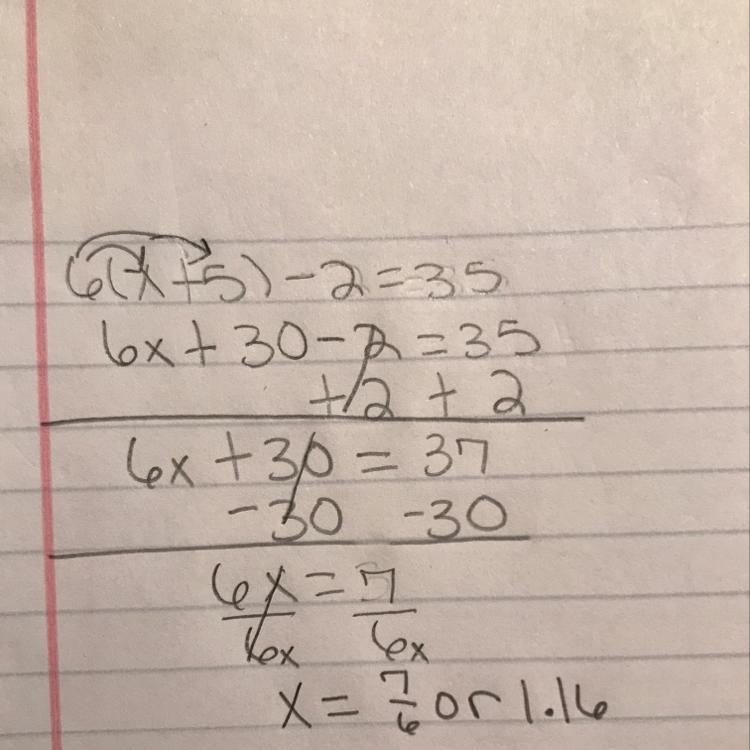 6(x+5)-2=35
6x+30-2=35
+2 +2
6x+30=37
-30 -30
6x=7
6x 6x
x=7/6 or 1.16